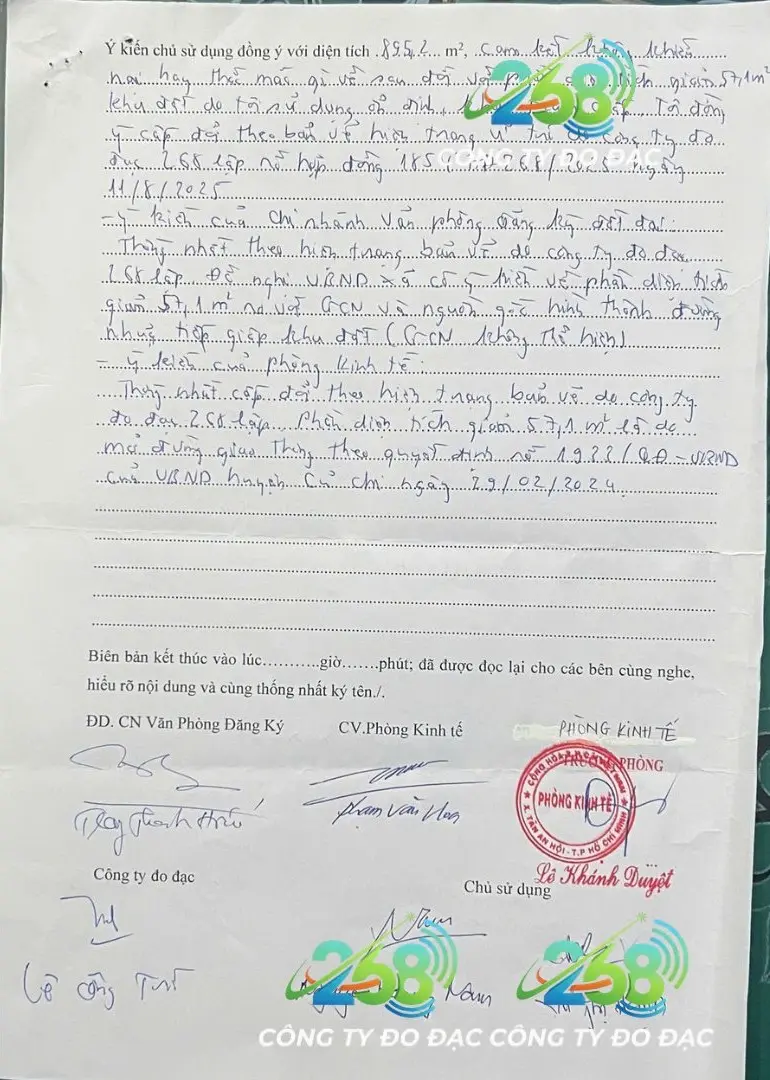 Ý kiến chủ sử dụng đồng ý với diện tích 895,2 m², cam kết không khiếu
nại hay thắc mắc gì về sau đối với phần diện tích giảm 57,1m²
khu đất do tôi sử dụng ổn định, tranh chấp. Tôi đồng
ý cấp đổi theo bản vẽ hiện trạng vị trí do công ty đo
đạc 268 lập số hợp đồng 185 268/2025 ngày
11/8/2025
- ý kiến của Chi nhánh Văn phòng đăng ký đất đai:
Thống nhất theo hiện trạng bản vẽ do công ty đo đạc
268 lập. Đề nghị UBND xã có ý kiến về phần diện tích
giảm 57,1m² so với GCN và nguồn gốc hình thành đường
nhựa tiếp giáp khu đất (GCN không thể hiện)
- ý kiến của phòng Kinh tế:
Thống nhất cấp đổi theo hiện trạng bản vẽ do công ty
đo đạc 268 lập. Phần diện tích giảm 57,1 m² là do
mở đường giao thông theo quyết định số 1922/QĐ-UBND
của UBND huyện Củ Chi ngày 29/02/2024.
Biên bản kết thúc vào lúc...........giờ.......phút; đã được đọc lại cho các bên cùng nghe,
hiểu rõ nội dung và cùng thống nhất ký tên./.
ĐD. CN Văn Phòng Đăng Ký CV.Phòng Kinh tế PHÒNG KINH TẾ
TRƯỞNG PHÒNG
CỘNG HÒA VIỆT NAM
PHÒNG KINH TẾ
X. TÂN AN HỘI - T.P HỒ CHÍ MINH
Phạm Văn
Lê Khánh Duyệt
Công ty đo đạc Chủ sử dụng
Lê Công
Nam
268
CÔNG TY ĐO ĐẠC
268
CÔNG TY ĐO ĐẠC
268
CÔNG TY ĐO ĐẠC